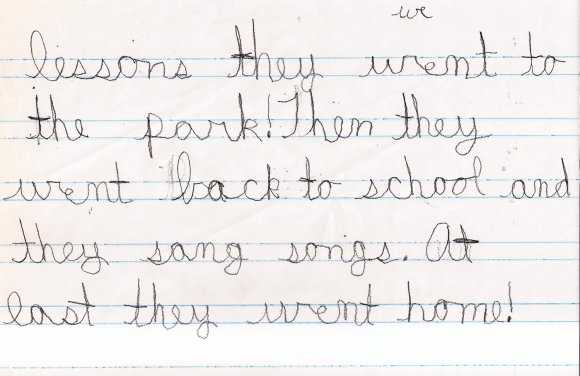 we
lessons they went to
the park! Then they
went back to school and
they sang songs. At
last they went home!